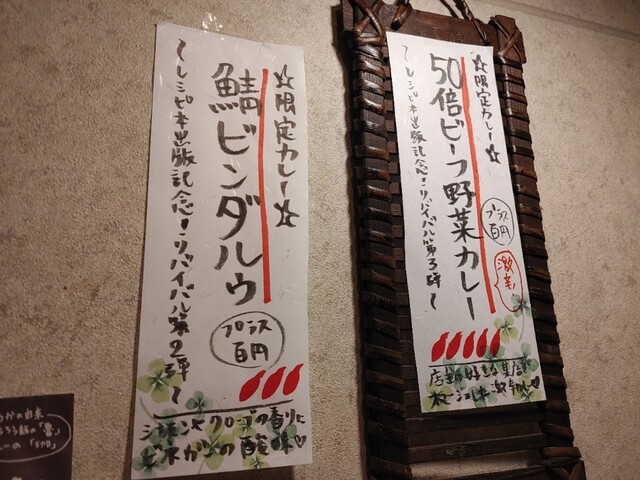 ☆限定カレー☆
鯖ビンダルゥ
〜レシピ本出版記念!リバイバル第2弾〜
プラス
百円
シナモンとクローブの香りに
ビネガーの酸味♡
☆限定カレー☆
50倍ビーフ野菜カレー
〜レシピ本出版記念!リバイバル第3弾〜
プラス
百円
激辛